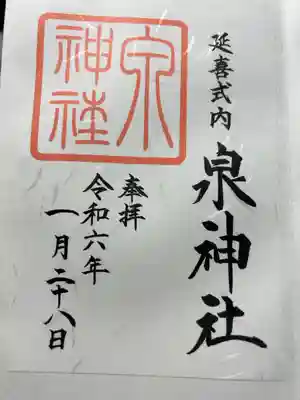 延喜式内
泉神社
奉拝
令和六年
一月二十八日
泉神社